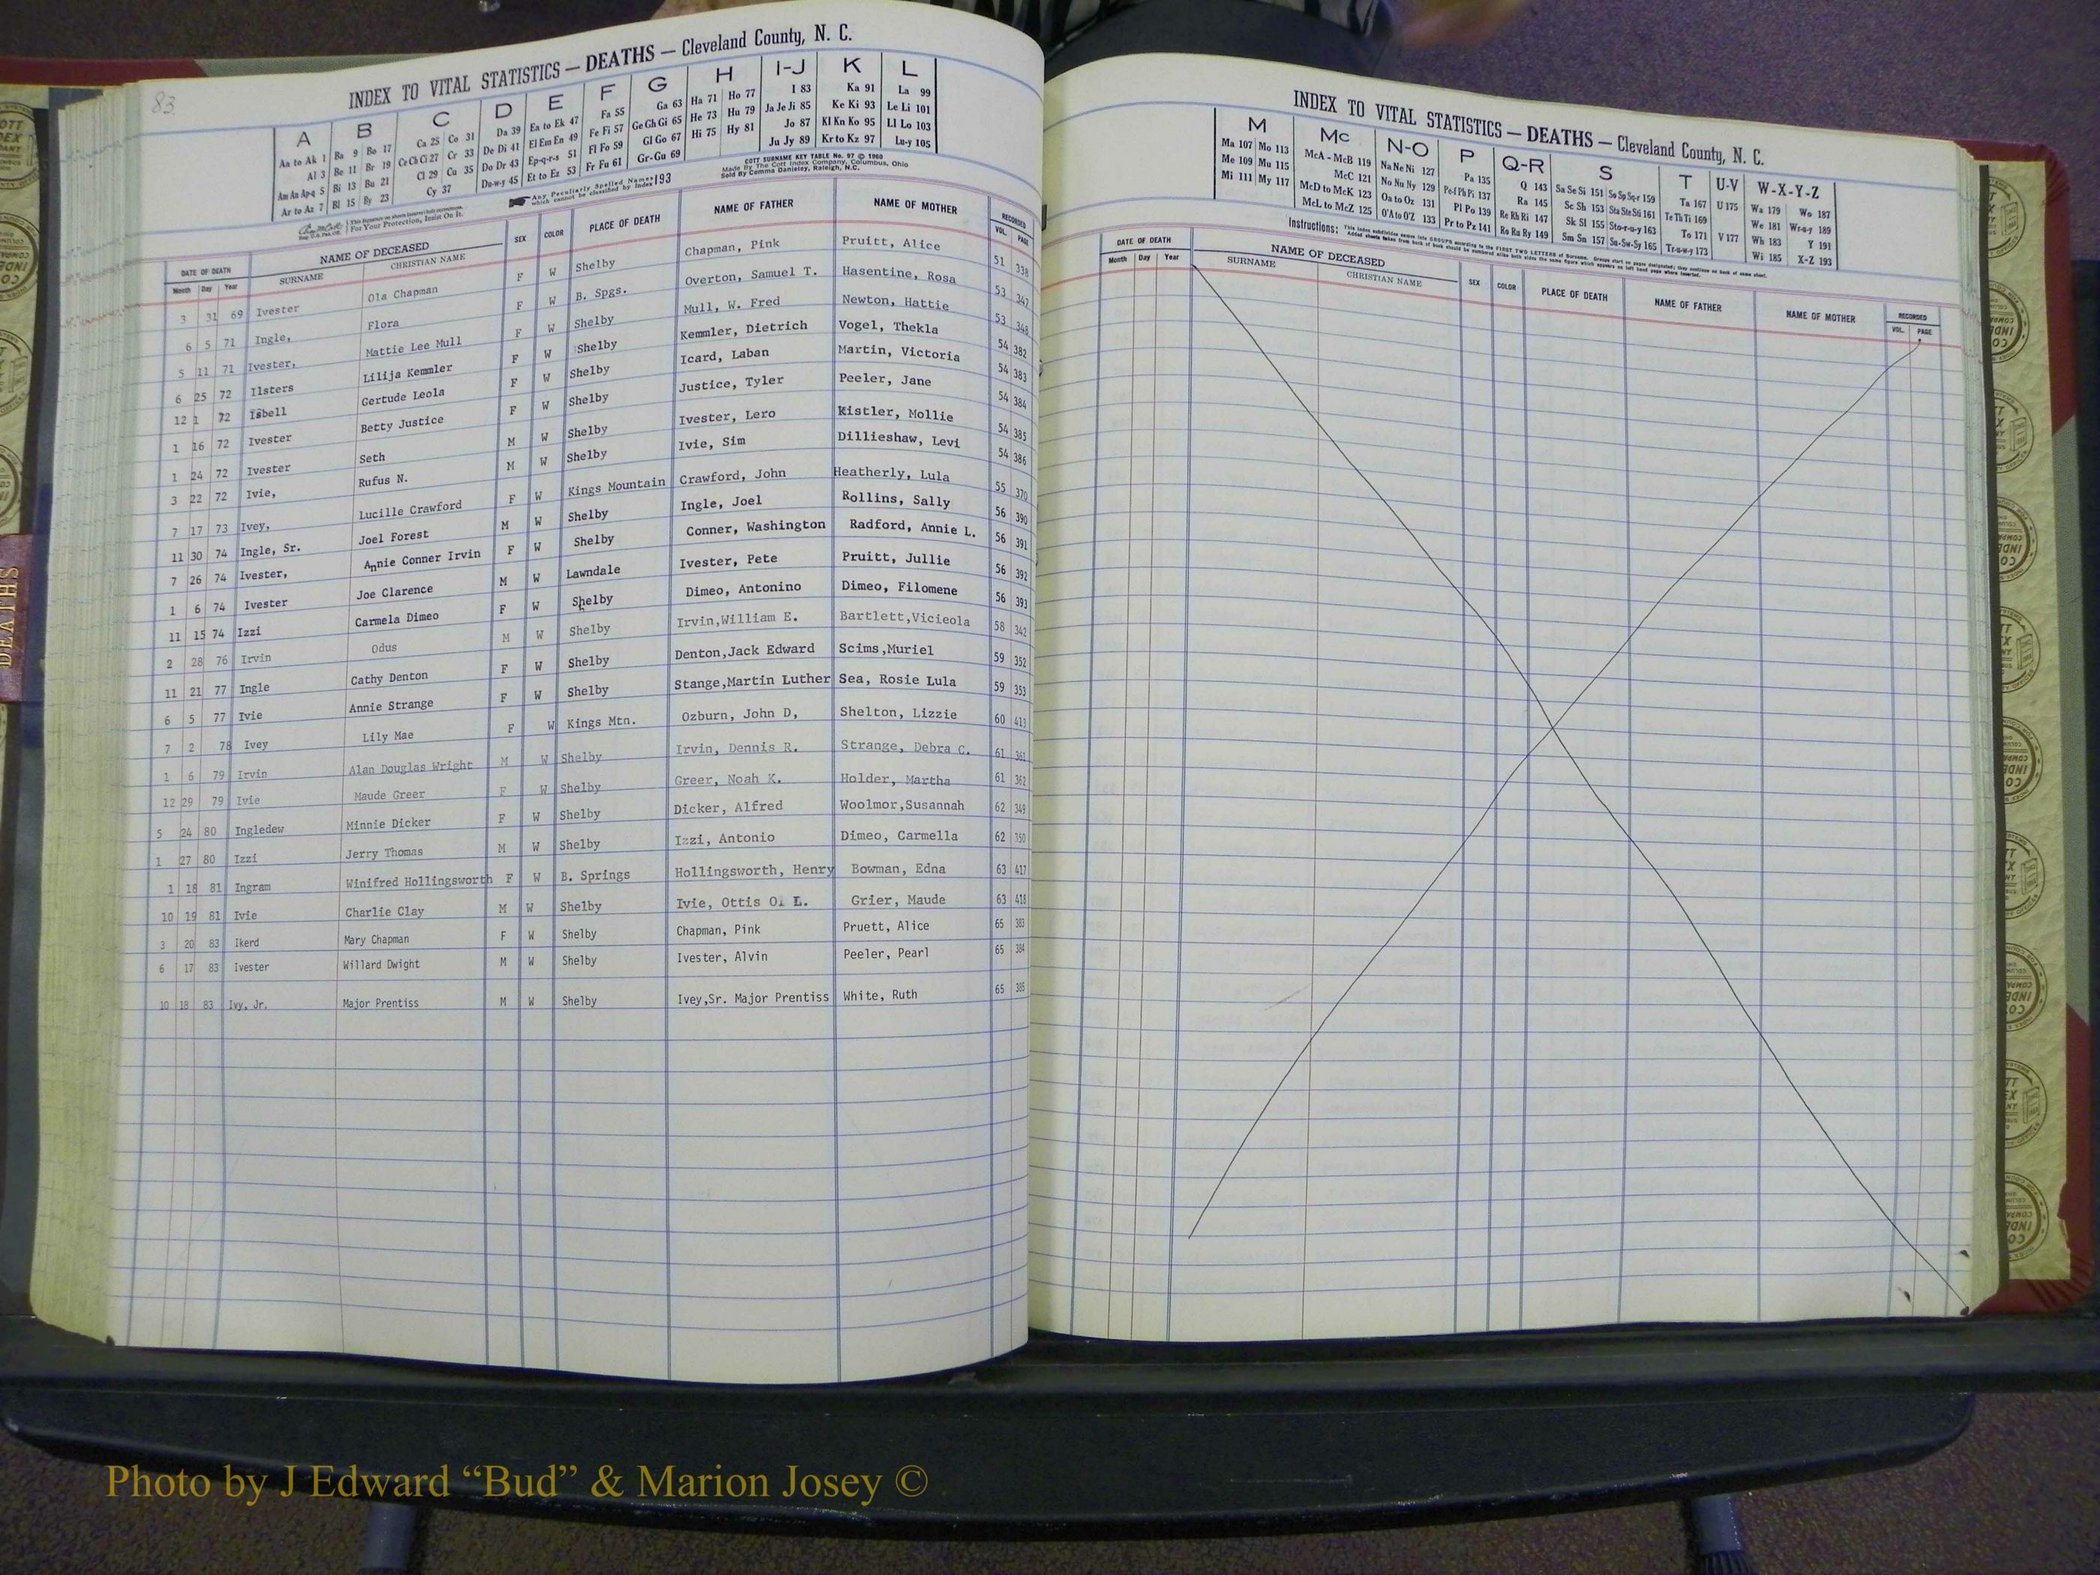 83
INDEX TO VITAL STATISTICS — DEATHS — Cleveland County, N. C.
A B C D E F G H I-J K L
Aa to Ak 1 Ba 9 Bo 17 Ca 25 Co 31 Da 39 Ea to Ek 47 Fa 55 Ga 63 Ha 71 Ho 77 I 83 Ka 91 La 99
Al 3 Be 11 Br 19 Ce Ch Ci 27 Cr 33 De Di 41 El Em En 49 Fe Fi 57 Ge Gh Gi 65 He 73 Hu 79 Ja Je Ji 85 Ke Ki 93 Le Li 101
Am An Ap-q 5 Bi 13 Bu 21 Cl 29 Cu 35 Do Dr 43 Ep-q-r-s 51 Fl Fo 59 Gl Go 67 Hi 75 Hy 81 Jo 87 Kl Kn Ko 95 Ll Lo 103
Ar to Az 7 Bl 15 By 23 Cy 37 Du-w-y 45 Et to Ez 53 Fr Fu 61 Gr-Gu 69 Ju Jy 89 Kr to Kz 97 Lu-y 105
Any Peculiarly Spelled Names which cannot be classified by Index 193
COTT SURNAME KEY TABLE No. 97 © 1960
Made By The Cott Index Company, Columbus, Ohio
Sold By Comma Danieley, Raleigh, N.C.
For Your Protection, Insist On It.
DATE OF DEATH NAME OF DECEASED SEX COLOR PLACE OF DEATH NAME OF FATHER NAME OF MOTHER RECORDED
Month Day Year SURNAME CHRISTIAN NAME VOL. PAGE
3 31 69 Ivester Ola Chapman F W Shelby Chapman, Pink Pruitt, Alice 51 338
6 5 71 Ingle, Flora F W B. Spgs. Overton, Samuel T. Hasentine, Rosa 53 347
5 11 71 Ivester, Mattie Lee Mull F W Shelby Mull, W. Fred Newton, Hattie 53 348
6 25 72 Ilsters Lilija Kemmler F W Shelby Kemmler, Dietrich Vogel, Thekla 54 382
12 1 72 Isbell Gertude Leola F W Shelby Icard, Laban Martin, Victoria 54 383
1 16 72 Ivester Betty Justice F W Shelby Justice, Tyler Peeler, Jane 54 384
1 24 72 Ivester Seth M W Shelby Ivester, Lero Kistler, Mollie 54 385
3 22 72 Ivie, Rufus N. M W Shelby Ivie, Sim Dillieshaw, Levi 54 386
7 17 73 Ivey, Lucille Crawford F W Kings Mountain Crawford, John Heatherly, Lula 55 370
11 30 74 Ingle, Sr. Joel Forest M W Shelby Ingle, Joel Rollins, Sally 56 390
7 26 74 Ivester, Annie Conner Irvin F W Shelby Conner, Washington Radford, Annie L. 56 391
1 6 74 Ivester Joe Clarence M W Lawndale Ivester, Pete Pruitt, Jullie 56 392
11 15 74 Izzi Carmela Dimeo F W Shelby Dimeo, Antonino Dimeo, Filomene 56 393
2 28 76 Irvin Odus M W Shelby Irvin,William E. Bartlett,Vicieola 58 342
11 21 77 Ingle Cathy Denton F W Shelby Denton,Jack Edward Scims,Muriel 59 352
6 5 77 Ivie Annie Strange F W Shelby Stange,Martin Luther Sea, Rosie Lula 59 353
7 2 78 Ivey Lily Mae F W Kings Mtn. Ozburn, John D, Shelton, Lizzie 60 413
1 6 79 Irvin Alan Douglas Wright M W Shelby Irvin, Dennis R. Strange, Debra C. 61 361
12 29 79 Ivie Maude Greer F W Shelby Greer, Noah K. Holder, Martha 61 362
5 24 80 Ingledew Minnie Dicker F W Shelby Dicker, Alfred Woolmor,Susannah 62 349
1 27 80 Izzi Jerry Thomas M W Shelby Izzi, Antonio Dimeo, Carmella 62 350
1 18 81 Ingram Winifred Hollingsworth F W B. Springs Hollingsworth, Henry Bowman, Edna 63 417
10 19 81 Ivie Charlie Clay M W Shelby Ivie, Ottis O. L. Grier, Maude 63 418
3 20 83 Ikerd Mary Chapman F W Shelby Chapman, Pink Pruett, Alice 65 383
6 17 83 Ivester Willard Dwight M W Shelby Ivester, Alvin Peeler, Pearl 65 384
10 18 83 Ivy, Jr. Major Prentiss M W Shelby Ivey,Sr. Major Prentiss White, Ruth 65 385
INDEX TO VITAL STATISTICS — DEATHS — Cleveland County, N. C.
M Mc N-O P Q-R S T U-V W-X-Y-Z
Ma 107 Mo 113 McA - McB 119 Na Ne Ni 127 Pa 135 Q 143 Sa Se Si 151 So Sp Sq-r 159 Ta 167 U 175 Wa 179 Wo 187
Me 109 Mu 115 McC 121 No Nu Ny 129 Pe-f Ph Pi 137 Ra 145 Sc Sh 153 Sta Ste Sti 161 Te Th Ti 169 We 181 Wr-u-y 189
Mi 111 My 117 McD to McK 123 Oa to Oz 131 Pl Po 139 Re Rh Ri 147 Sk Sl 155 Sto-r-u-y 163 To 171 V 177 Wh 183 Y 191
McL to McZ 125 O'A to O'Z 133 Pr to Pz 141 Ro Ru Ry 149 Sm Sn 157 Su-Sw-Sy 165 Tr-u-w-y 173 Wi 185 X-Z 193
Instructions: This index subdivides names into GROUPS according to the FIRST TWO LETTERS of Surname. Groups start on pages designated; they continue on back of same sheet.
DATE OF DEATH NAME OF DECEASED SEX COLOR PLACE OF DEATH NAME OF FATHER NAME OF MOTHER RECORDED
Month Day Year SURNAME CHRISTIAN NAME VOL. PAGE
DEATHS
Photo by J Edward “Bud” & Marion Josey ©